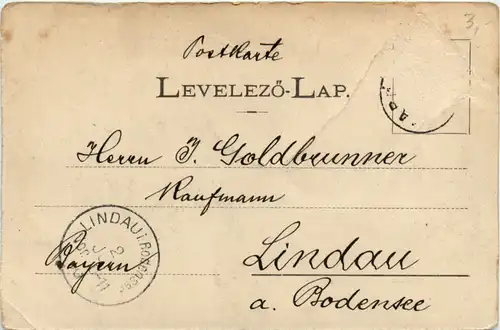 3,
Postkarte
LEVELEZŐ-LAP.
Herrn J. Goldbrunner
Kaufmann
LINDAU i. Bodensee
2
Bayern
Lindau
a. Bodensee